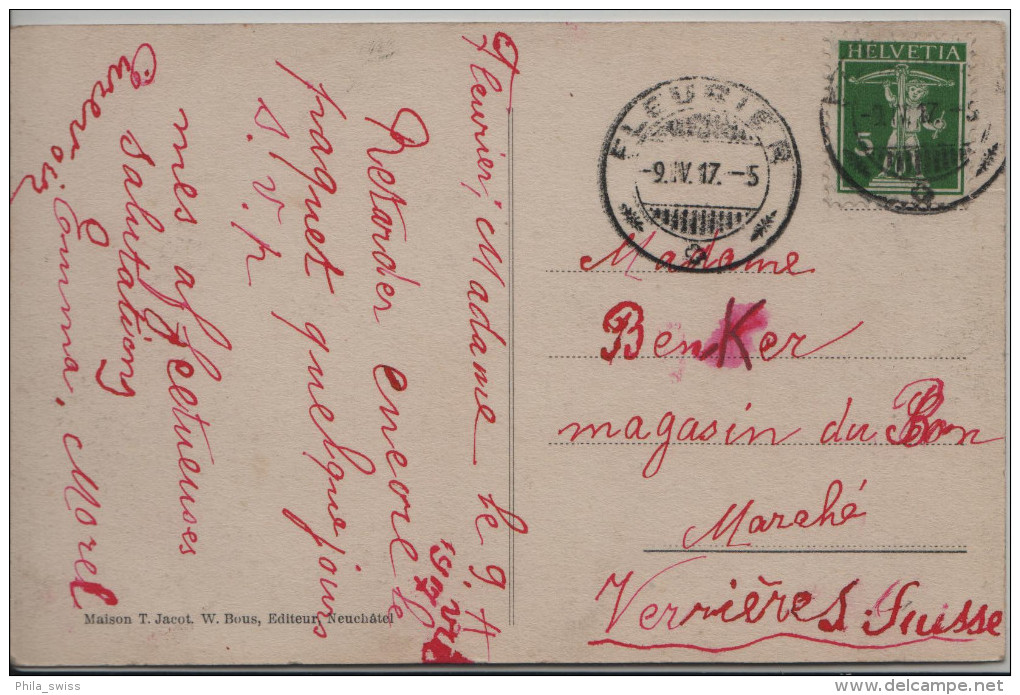 Fleurier, Madame le 9
Retarder encore le
paquet quelque jours
s. v. p
mes affectueuses
salutations
Emma. Morel
HELVETIA
5
FLEURIER
-9.IV.17.-5
Madame
Benker
magasin du Bon
Marché
Verrières. Suisse
Maison T. Jacot. W. Bous, Editeur, Neuchâtel
Phila_swiss
www.delcampe.net